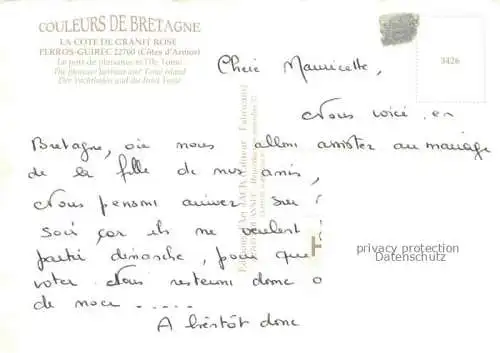 COULEURS DE BRETAGNE
LA COTE DE GRANIT ROSE
PERROS-GUIREC 22700 (Côtes d'Armor)
Le port de plaisance et l'île Tomé
The pleasure harbour and Tomé island
Der Yachthafen und die Insel Tomé
3426
Chère Mauricette,
Nous voici en
Bretagne, où nous allons assister au mariage
de la fille de nos amis,
Nous pensons arriver sur
soir car ils ne veulent
partir dimanche, pour que
voter Nous resterons donc
de noce .....
A bientôt donc
Editions d'Art JACK Editeur Fabricant
privacy protection
Datenschutz